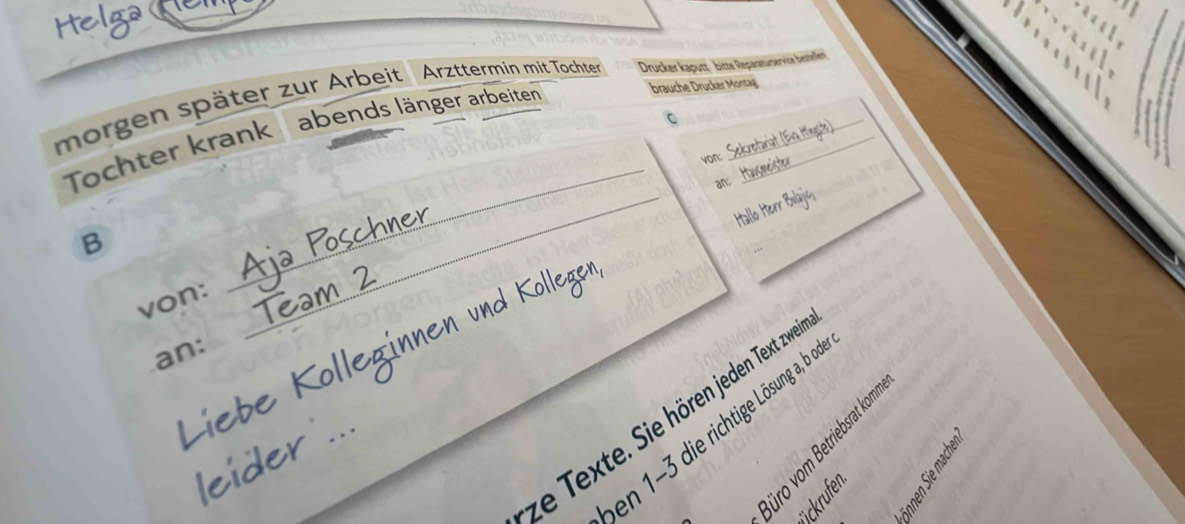 Helga
morgen später zur Arbeit Arzttermin mit Tochter
Tochter krank abends länger arbeiten
Drucker kaputt bitte Reparaturservice bestellen
brauche Drucker Montag
B
von: Aja Poschner
an: Team 2
Liebe Kolleginnen und Kollegen,
leider ...
C
von: Sekretariat (Eva
an: Hausmeister
Hallo Herr
...
rze Texte. Sie hören jeden Text zweimal.
ben 1–3 die richtige Lösung a, b oder c
Büro vom Betriebsrat kommen.
ückrufen.
können Sie machen?